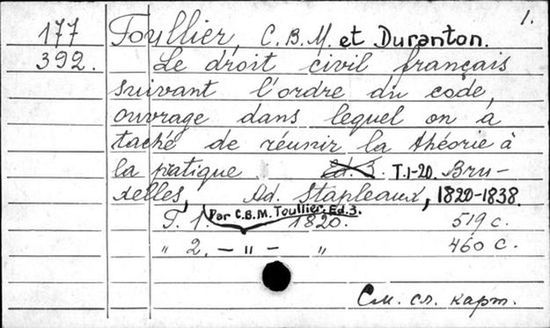 1.
177 Toullier, C.B.M. et Duranton.
392. Le droit civil français
suivant l'ordre du code,
ouvrage dans lequel on a
taché de réunir la théorie à
la pratique Ed. 3. T.1-20. Bru-
xelles, Ad. Stapleaux, 1820-1838.
Par C.B.M. Toullier. Ed.3.
T. 1. 1820. 519 c.
" 2. — " — " 460 c.
См. сл. карт.